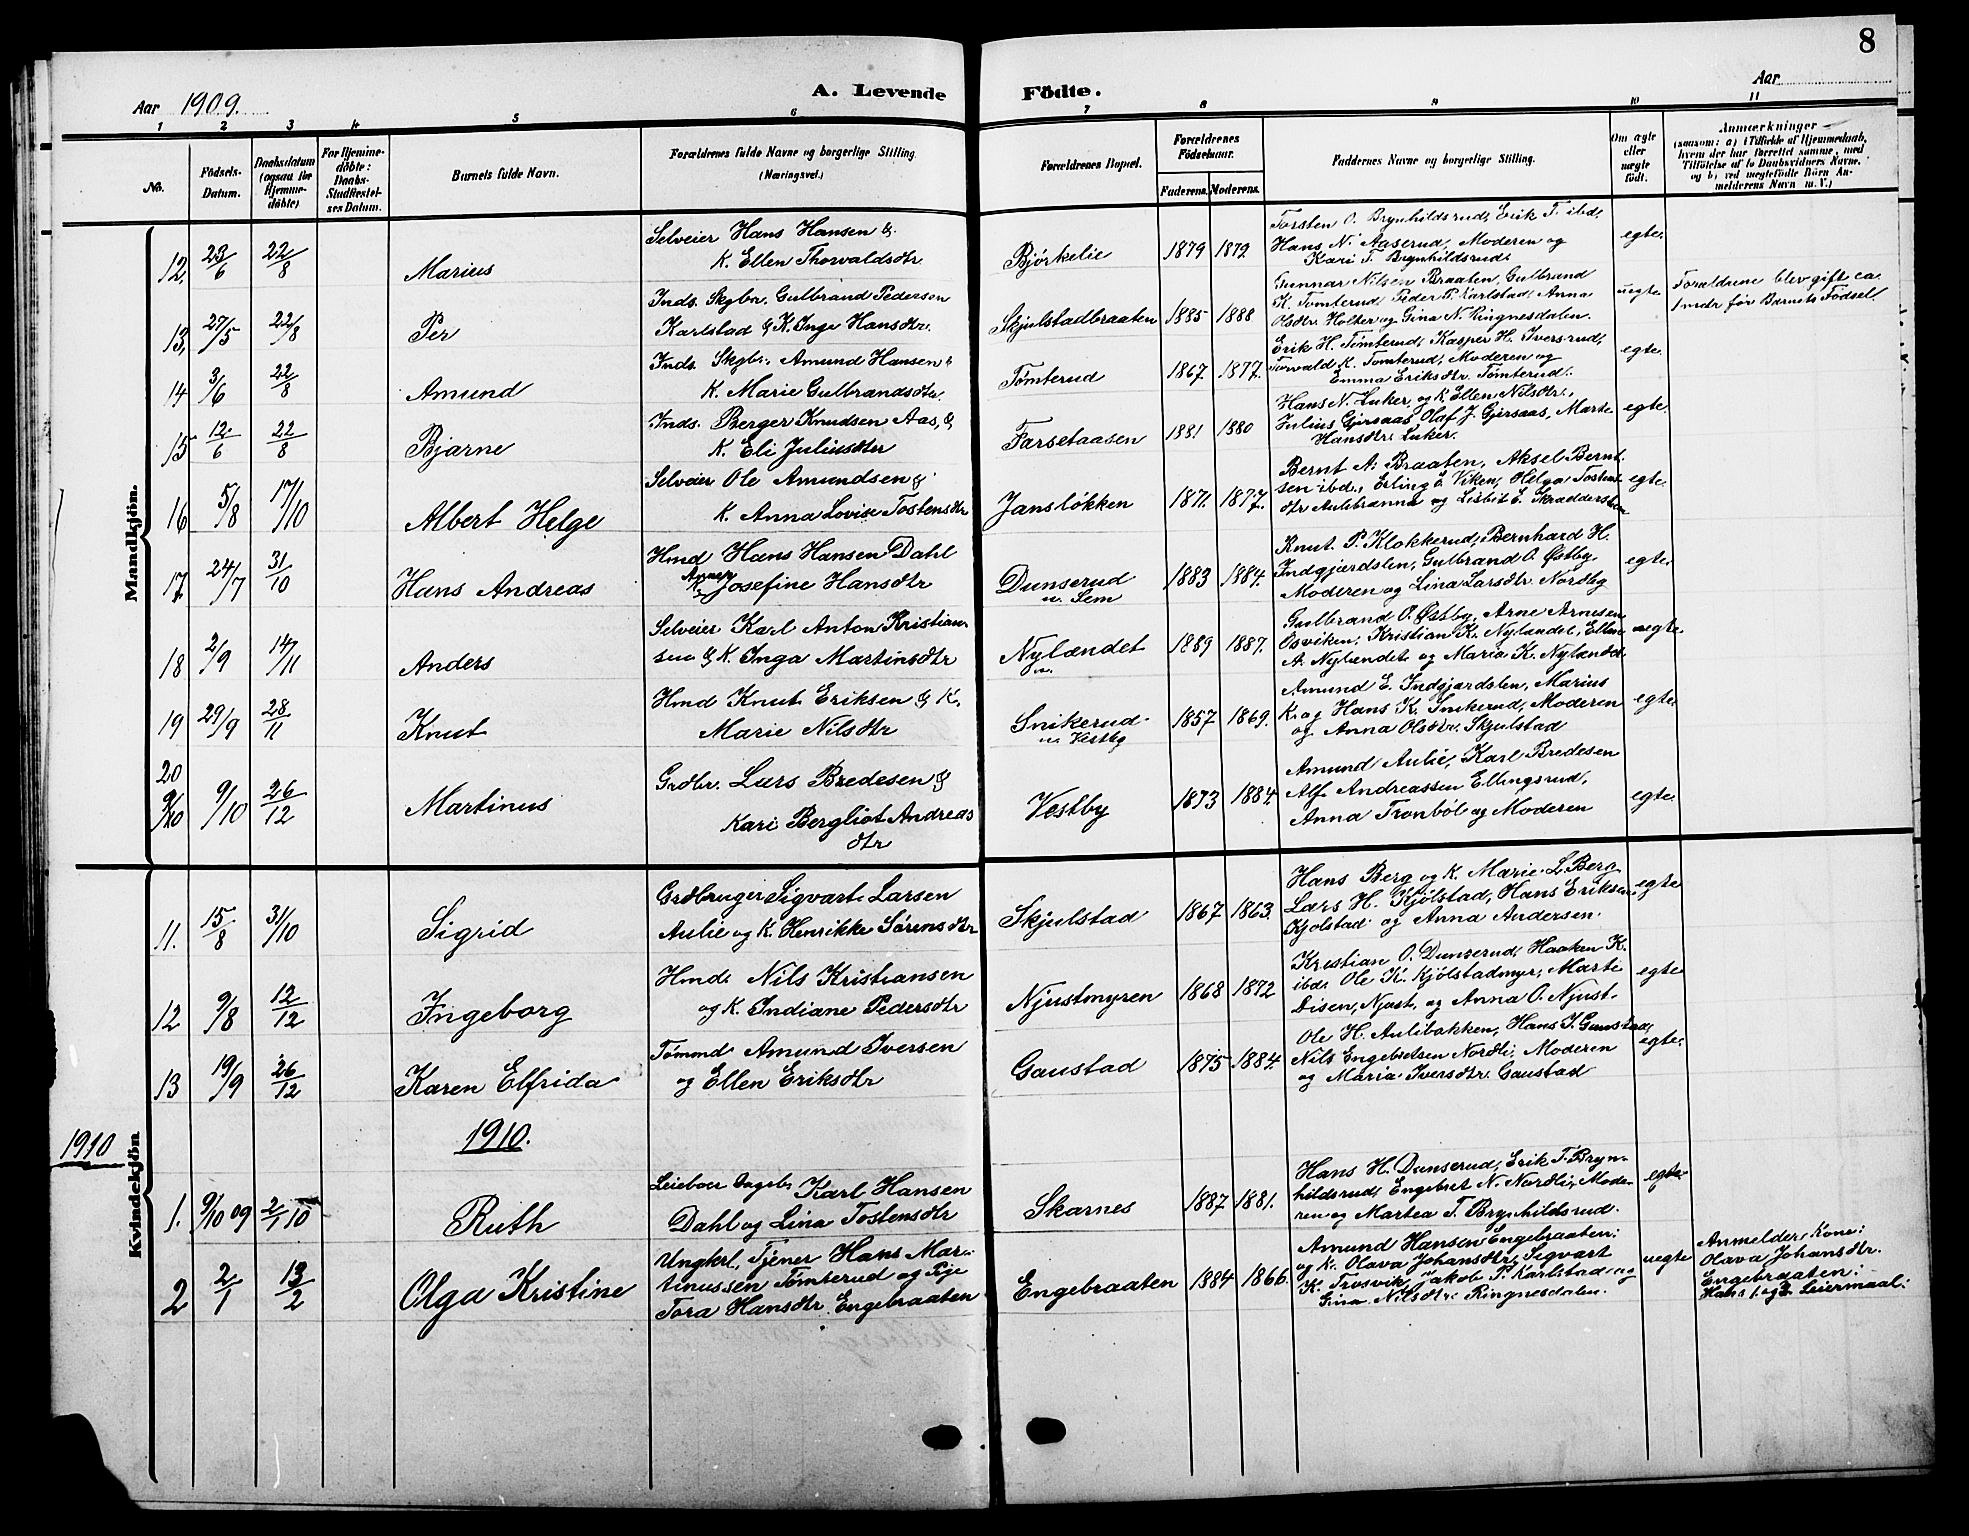 8
Aar 1909.
A. Levende Födte.
Aar
1 2 3 4 5 6 7 8 9 10 11
No.
Födsels-Datum.
Daabsdatum (ogsaa for Hjemmedöbte)
For Hjemmedöbte: Daabs-Stadfæstelses Datum.
Barnets fulde Navn.
Forældrenes fulde Navne og borgerlige Stilling. (Næringsvei.)
Forældrenes Bopæl.
Forældrenes Födselsaar.
Faderens. Moderens.
Faddernes Navne og borgerlige Stilling.
Om ægte eller uægte født.
Anmærkninger
(saasom: a) i Tilfælde af Hjemmedaab, hvem der har forrettet samme, med Tilføielse af to Daabsvidners Navne, og b) ved uægtefødte Börn Anmelderens Navn m. V.)
Mandkjön.
12, 23/6 22/8 Marius
Selveier Hans Hansen &
K. Ellen Thorvaldsdtr
Bjørkelie 1879 1879
Torsten O. Brynhildsrud, Erik T. ibd,
Hans N. Aaserud, Moderen og
Kari T. Brynhildsrud.
egte.
13, 27/5 22/8 Per
Inds. Skgbr. Gulbrand Pedersen
Karlstad & K. Inge Hansdtr.
Skjulstadbraaten 1885 1888
Gunnar Nilsen Braaten, Gulbrand
K. Tomterud, Peder P. Karlstad, Anna
Olsdtr. Holter og Gina N. Ringnesdalen.
uegte
Foraldrene blev gift ca
1 mdr. før Barnets Fødsel
14 3/6 22/8 Amund
Inds. Skgbr. Amund Hansen &
K. Marie Gulbrandsdtr.
Tømterud 1867 1877.
Erik H. Tømterud, Kasper H. Iversrud,
Torvald K. Tomterud, Moderen og
Emma Eriksdtr. Tømterud.
egte.
15 12/6 22/8 Bjarne
Inds. Berger Knudsen Aas, &
K. Eli Juliusdtr
Farsetaasen 1881 1880
Hans N. Luker, og K. Ellen Nilsdtr.,
Julius Gjersaas, Olaf J. Gjersaas, Marte
Hansdtr. Luker.
egte.
16 5/8 17/10 Albert Helge
Selveier Ole Amundsen &
K. Anna Lovise Tostensdtr
Jansløkken 1871. 1877.
Bernt A. Braaten, Aksel Bernt
sen ibd., Erling O. Viken, Helga Tostens
dtr Aulibrænna og Lisbet E. Skradderstuen
egte.
17. 24/7 31/10 Hans Andreas
Hmd Hans Hansen Dahl
K. Anna Josefine Hansdtr
Dunserud u. Sem 1883 1884.
Knut P. Klokkerud, Bernhard H.
Indgjerdslen, Gulbrand O. Østby
Moderen og Lina Larsdtr. Nordby
egte.
18 2/9 14/11 Anders
Selveier Karl Anton Kristian-
sen & K. Inga Martinsdtr
Nylændet 1889 1887.
Gulbrand O. Østby, Arne Arnesen
Osviken, Kristian K. Nylændet, Ellen
A. Nylændet og Maria K. Nylændet
uegte.
19 29/9 28/11 Knut
Hmd Knut Eriksen & K.
Marie Nilsdtr
Snikerud u. Vestby 1857 1869.
Amund E. Indgjærdslen, Marius
Krog, Hans K. Snikerud, Moderen
og Anna Olsdtr. Skjulstad
egte.
20 9/10 9/10 26/12 Martinus
Grdbr. Lars Bredesen &
Kari Bergliot Andreas
dtr
Vestby 1873 1884.
Amund Aulie, Karl Bredesen
Alf Andreassen Ellingsrud,
Anna Tronbøl og Moderen
egte.
Kvindekjön
11. 15/8 31/10 Sigrid
Grdbruger Sigvart Larsen
Aulie og K. Henrikke Sørensdtr
Skjulstad 1867 1863.
Hans Berg og K. Marie L. Berg
Lars H. Kjölstad, Hans Eriksen
Kjolstad og Anna Andersen.
egte
12 9/8 12/12 Ingeborg
Hmd. Nils Kristiansen
og K. Indiane Pedersdtr
Njustmyren 1868 1872
Kristian O. Dunserud, Haaken K.
ibd. Ole K. Kjölstadmyr, Marte
Disen, Njust, og Anna O. Njust.
egte
13 19/9 26/12 Karen Elfrida
Tømmd. Amund Iversen
og Ellen Eriksdtr
Gaustad 1875 1884.
Ole H. Aulibakken, Hans I. Gaustad,
Nils Engebretsen Nordli, Moderen
og Maria Iversdtr. Gaustad
egte.
1910 1910.
1. 9/10 09 2/1 10 Ruth
Leieboer Dagarb. Karl Hansen
Dahl og Lina Tostensdtr
Skarnes 1887 1881.
Hans H. Dunserud, Erik T. Bryn-
hildsrud, Engebret N. Nordli, Mode-
ren og Martea T. Brynhildsrud.
egte
2 2/1 13/2 Olga Kristine
Ungkrl, Tjener Hans Mar-
tinussen Tømterud og Pige
Tora Hansdtr. Engebraaten
Engebraaten 1884 1866.
Amund Hansen Engebraaten:
og K. Olava Johansdtr, Sigvart
K. Trosvik, Jakob P. Karlstad og
Gina Nilsdtr. Ringnesdalen.
uegte
Anmelder: Kone:
Olava Johansdtr.
Engebraaten:
Hans 1. og Leiermaal: